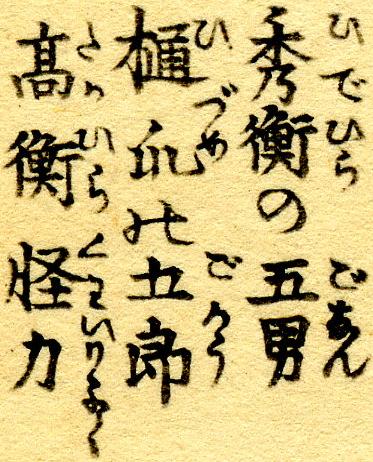 ひでひら ごなん
秀衡の五男
ひづめ ごらう
樋爪の五郎
たかひら くわいりよく
髙衡怪力